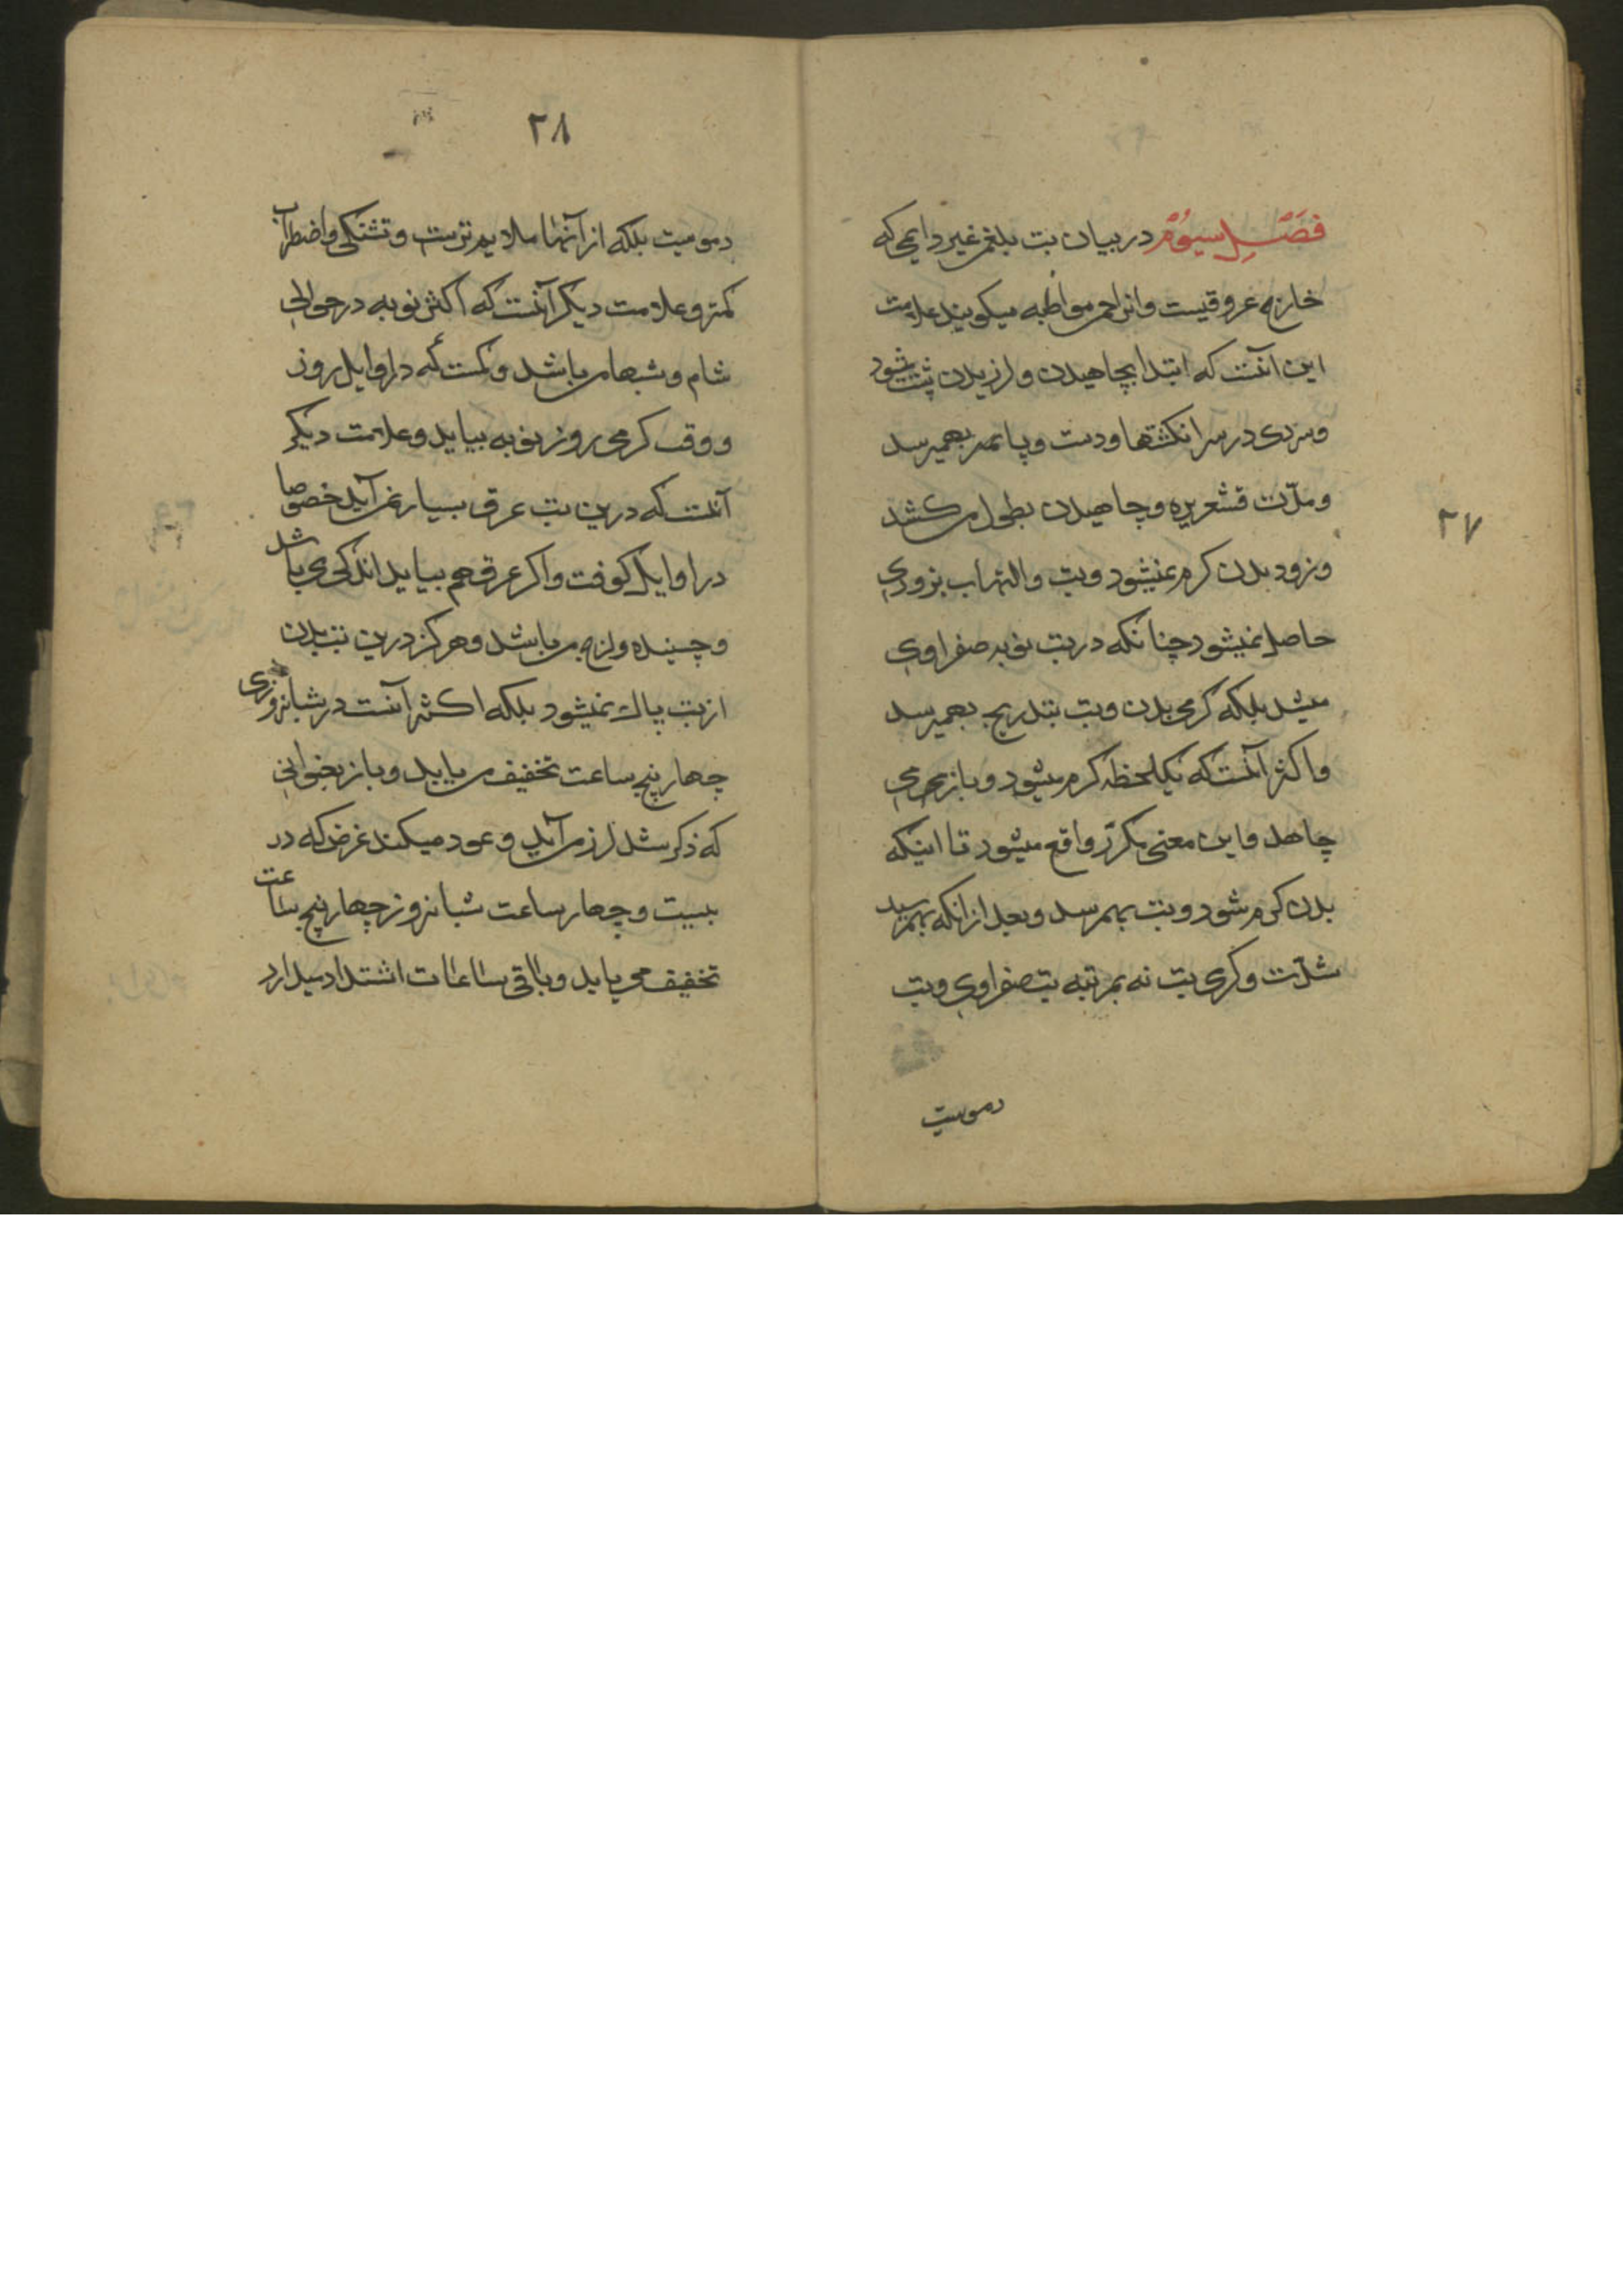 ۲۷
فصل سیوم در بیان تب بلغمی غیر دایمی که
خارج عروقیست و انرا حمی مواظبه میکویند علامت
این انست که ابتدا بچاهیدن و لرزیدن پشت میشود
و سردی در سر انکشتها و دست و پا بهمیرسد
و مدّت قشعریره و چاهیدن بطول می کشد
و زود بدن کرم نمیشود و تب و التهاب بزودی
حاصل نمیشود چنانکه در تب نوبه صفراوی
میشد بلکه کرمی بدن و تب بتدریج بهمیرسد
و اکثر آنست که یکلحظه کرم میشود و باز
چاهد و این معنی مکرّر واقع میشود تا اینکه
بدن کرم شود و تب بهمرسد و بعد از انکه بهمرسید
شدّت و کرمی تب نه بمرتبه تب صفراوی و تب
دمویست
۲۸
دمویست بلکه از آنها ملایم ترست و تشنکی و اضطراب
کمتر و علامت دیکر آنست که اکثر نوبه در حوالی
شام و شبها می باشد و کمست که در اوایل روز
و وقت کرمی روز نوبه بیاید و علامت دیکر
آنست که درین تب عرق بسیار نمی آید خصوصا
در اوایل کوفت و اکر عرق هم بیاید اندکی می باشد
و چسبنده و لزج می باشد و هرکز درین تب بدن
از تب پاک نمیشود بلکه اکثر آنست در شبانروزی
چهار پنج ساعت تخفیف می یابد و باز بعنوانی
که ذکر شد لرز می آید و عود میکند غرض که در
بیست و چهار ساعت شبانروز چهار پنج ساعت
تخفیف می یابد و باقی ساعات اشتداد میدارد